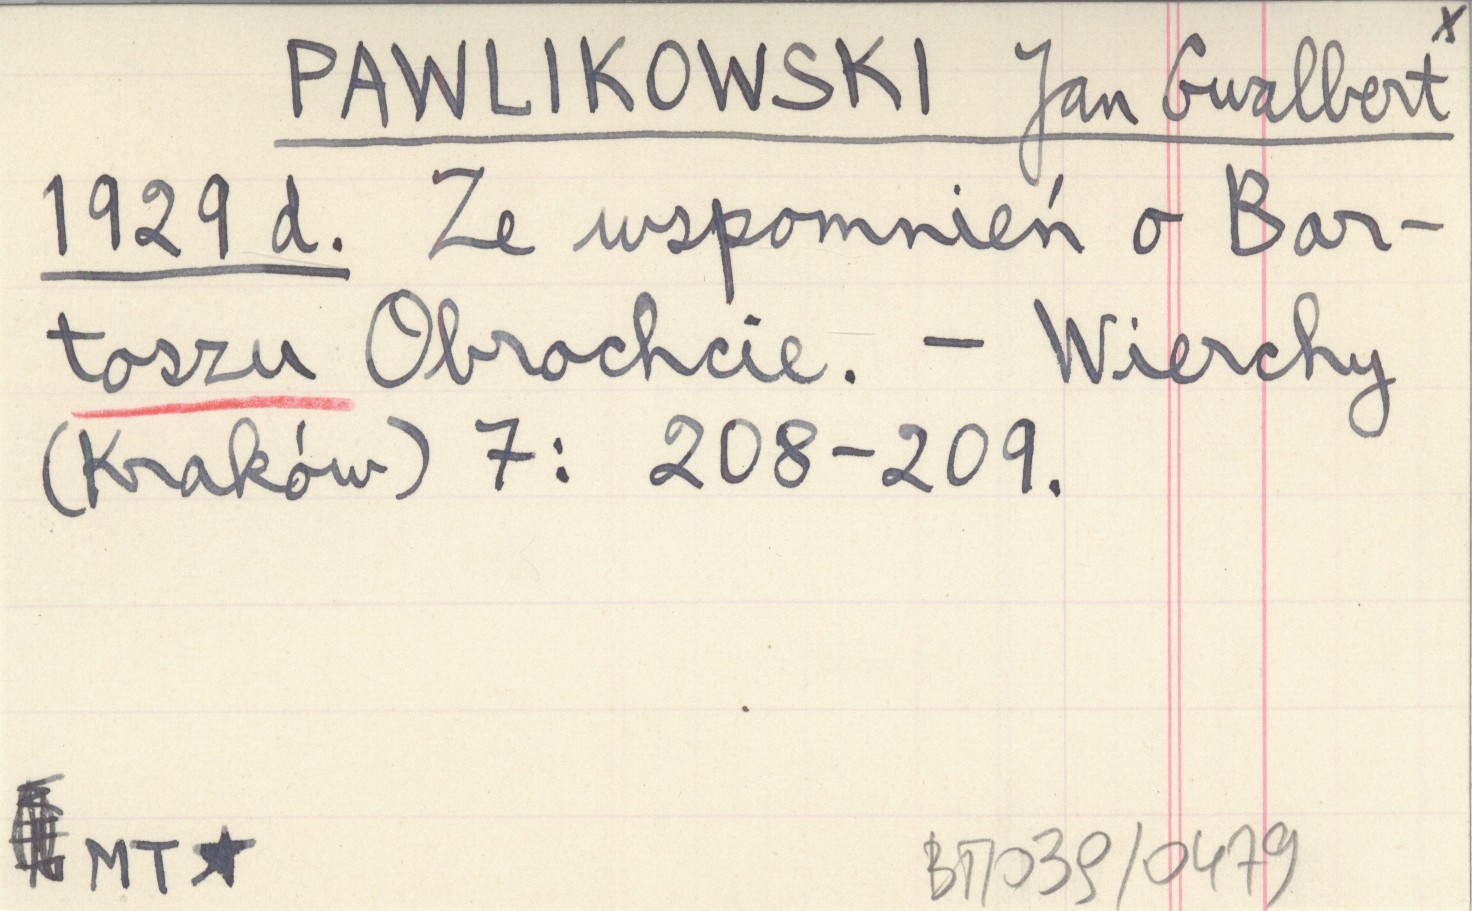 x
PAWLIKOWSKI Jan Gwalbert
1929 d. Ze wspomnień o Bar-
toszu Obrochcie. – Wierchy
(Kraków) 7: 208-209.
MT ★
039/0479